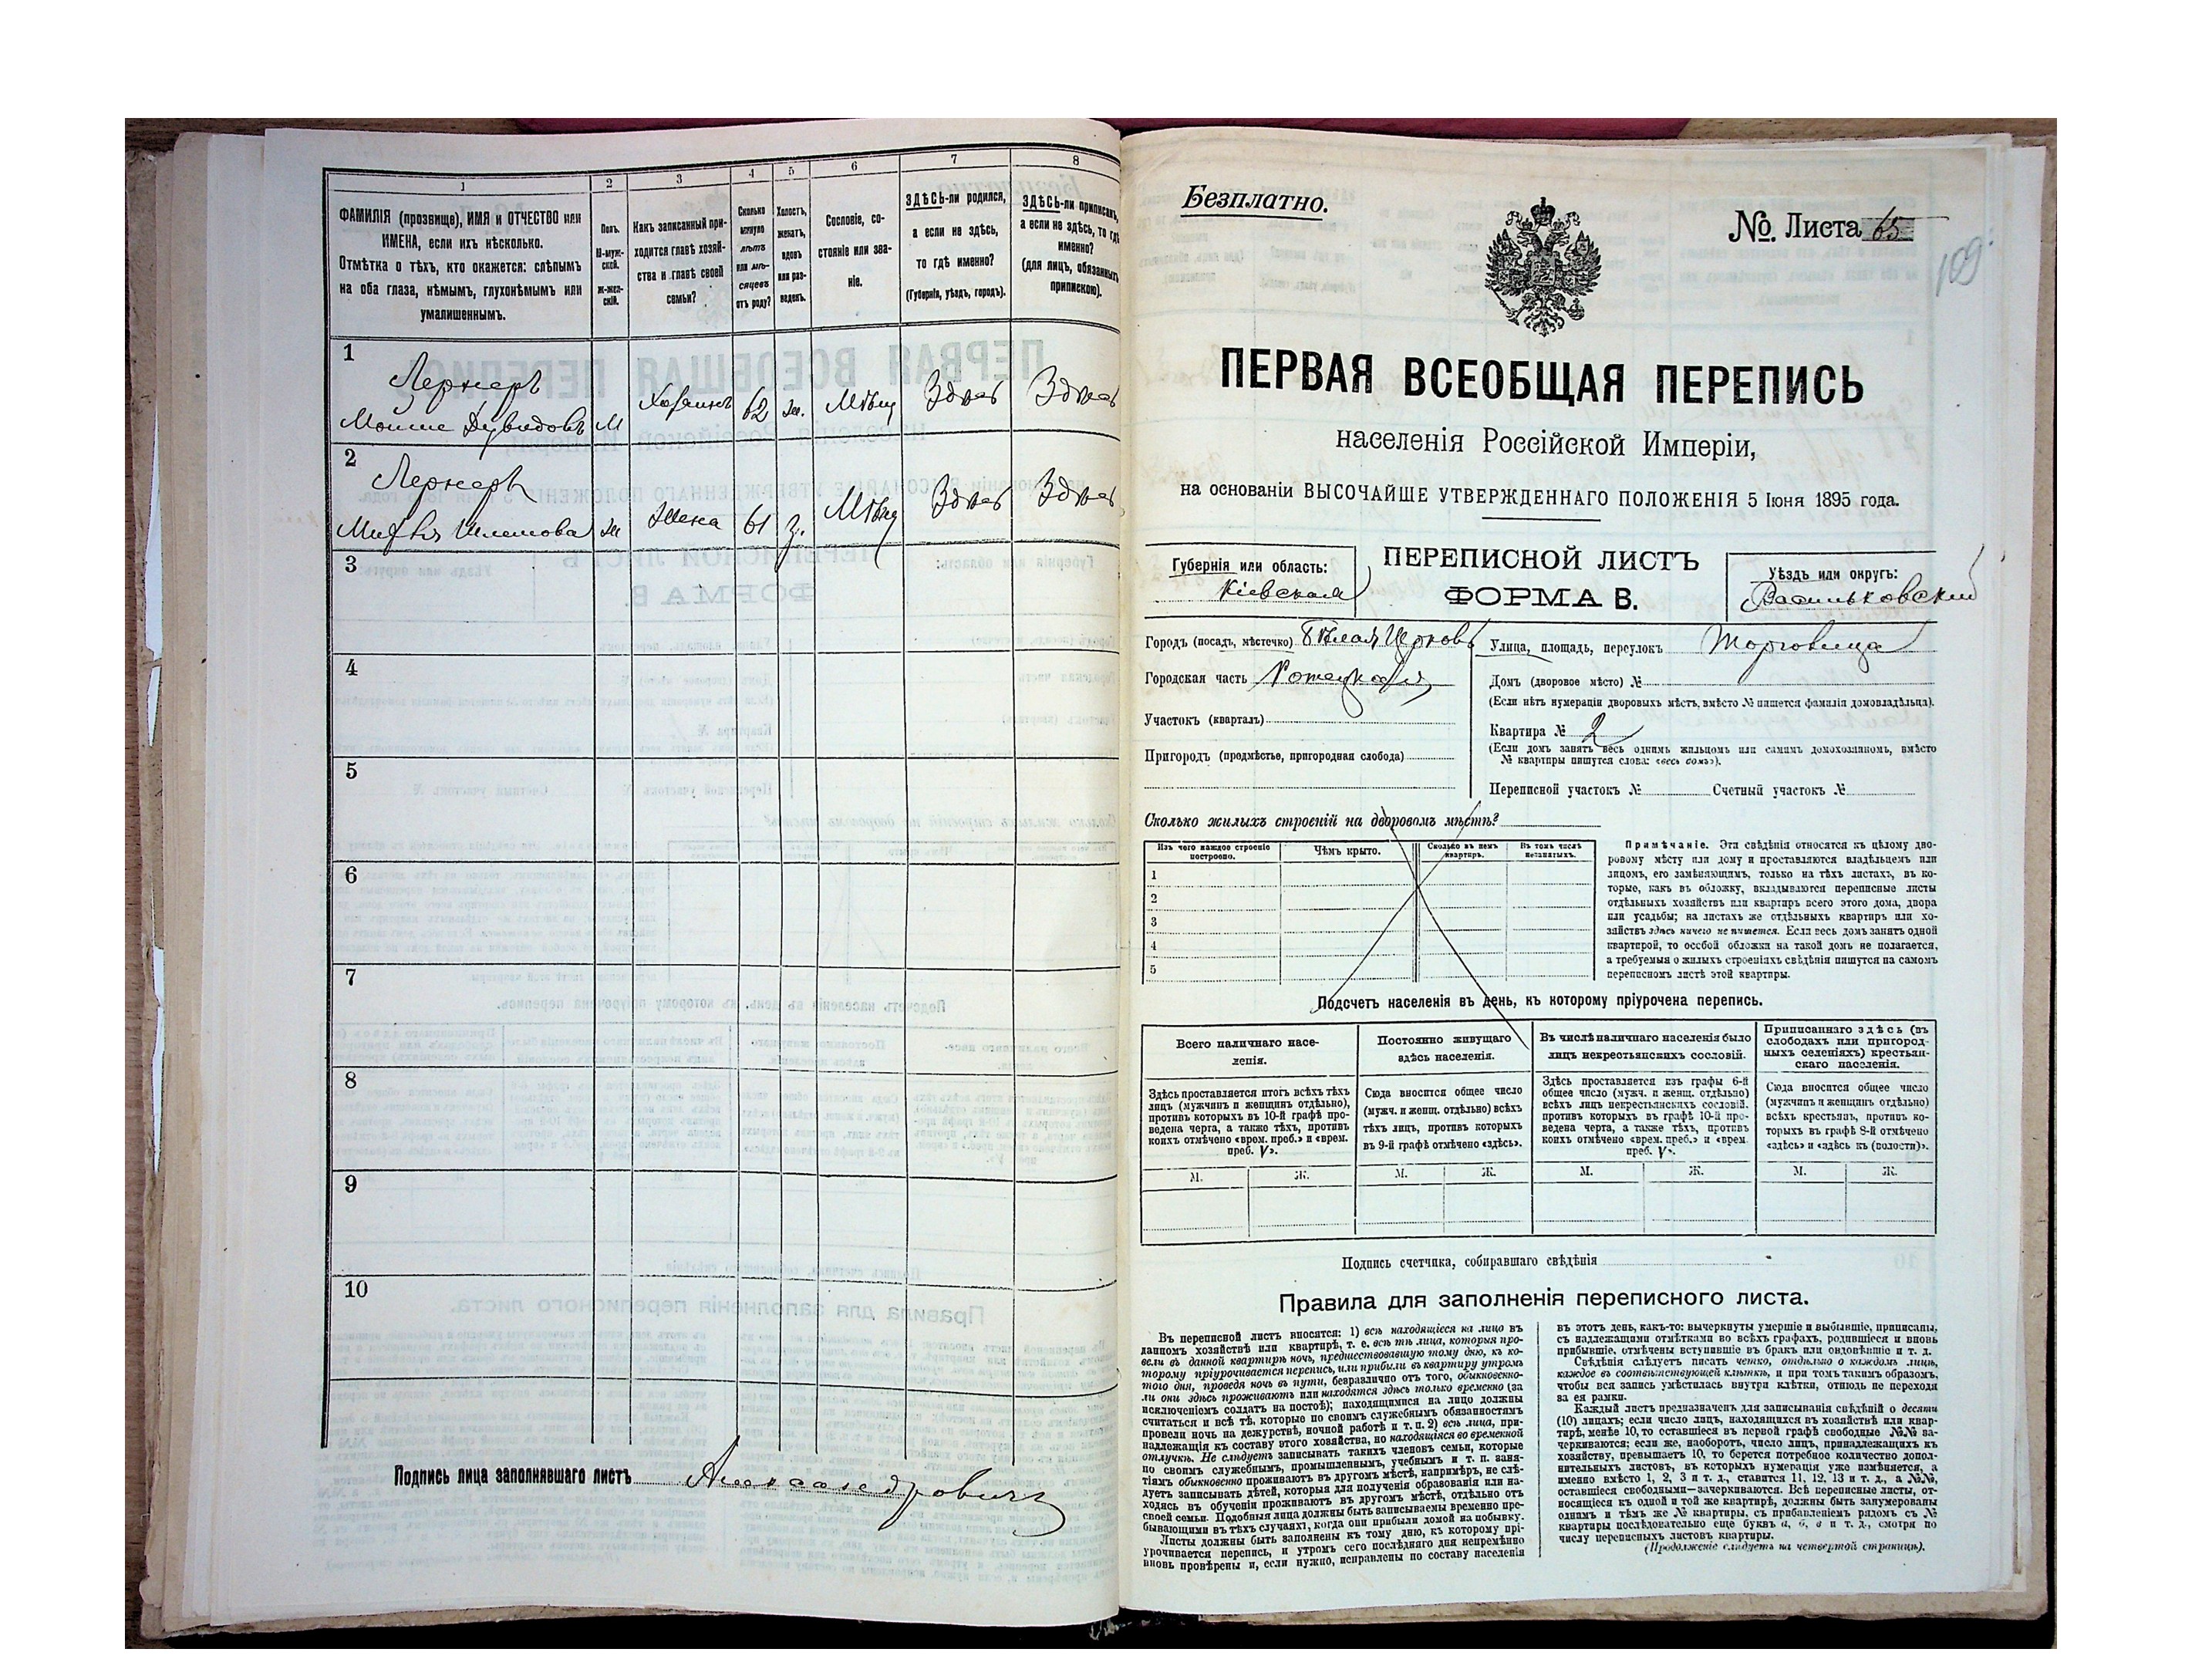 1 2 3 4 5 6 7 8
ФАМИЛІЯ (прозвище), ИМЯ и ОТЧЕСТВО или
ИМЕНА, если ихъ нѣсколько.
Отмѣтка о тѣхъ, кто окажется: слѣпымъ
на оба глаза, нѣмымъ, глухонѣмымъ или
умалишеннымъ.
Полъ.
М-муж-
ской.
ж-жен-
скій.
Какъ записанный при-
ходится главѣ хозяй-
ства и главѣ своей
семьи?
Сколько
минуло
лѣтъ
или мѣ-
сяцевъ
отъ роду?
Холостъ,
женатъ,
вдовъ
или раз-
веденъ.
Сословіе, со-
стояніе или зва-
ніе.
ЗДѢСЬ-ли родился,
а если не здѣсь,
то гдѣ именно?
(Губернія, уѣздъ, городъ).
ЗДѢСЬ-ли приписанъ,
а если не здѣсь, то гдѣ
именно?
(для лицъ, обязанныхъ
припискою).
1
Лернеръ
Мойше Дувидовъ М Хозяинъ 62 ж. Мѣщ Здѣсь Здѣсь
2
Лернеръ
Шлемова ж Жена 61 з. Мѣщ Здѣсь Здѣсь
3
4
5
6
7
8
9
10
Подпись лица заполнявшаго листъ Александровичъ
Безплатно.
№ Листа 65
109
ПЕРВАЯ ВСЕОБЩАЯ ПЕРЕПИСЬ
населенія Россійской Имперіи,
на основаніи ВЫСОЧАЙШЕ УТВЕРЖДЕННАГО ПОЛОЖЕНІЯ 5 Іюня 1895 года.
Губернія или область:
Кіевская
ПЕРЕПИСНОЙ ЛИСТЪ
ФОРМА В.
Уѣздъ или округъ:
Васильковскій
Городъ (посадъ, мѣстечко) Бѣлая Церковь
Городская часть
Участокъ (кварталъ)
Пригородъ (предмѣстье, пригородная слобода)
Улица, площадь, переулокъ Торговица
Домъ (дворовое мѣсто) №
(Если нѣтъ нумераціи дворовыхъ мѣстъ, вмѣсто № пишется фамилія домовладѣльца).
Квартира № 2
(Если домъ занятъ весь однимъ жильцомъ или самимъ домохозяиномъ, вмѣсто
№ квартиры пишутся слова: «весь домъ»).
Переписной участокъ № Счетный участокъ №
Сколько жилыхъ строеній на дворовомъ мѣстѣ?
Изъ чего каждое строеніе
построено.
Чѣмъ крыто.
Сколько въ немъ
квартиръ.
Въ томъ числѣ
незанятыхъ.
1
2
3
4
5
Примѣчаніе. Эти свѣдѣнія относятся къ цѣлому дво-
ровому мѣсту или дому и проставляются владѣльцемъ или
лицомъ, его замѣняющимъ, только на тѣхъ листахъ, въ ко-
торые, какъ въ обложку, вкладываются переписные листы
отдѣльныхъ хозяйствъ или квартиръ всего этого дома, двора
или усадьбы; на листахъ же отдѣльныхъ квартиръ или хо-
зяйствъ здѣсь ничего не пишется. Если весь домъ занятъ одной
квартирой, то особой обложки на такой домъ не полагается,
а требуемыя о жилыхъ строеніяхъ свѣдѣнія пишутся на самомъ
переписномъ листѣ этой квартиры.
Подсчетъ населенія въ день, къ которому пріурочена перепись.
Всего наличнаго насе-
ленія.
Здѣсь проставляется итогъ всѣхъ тѣхъ
лицъ (мужчинъ и женщинъ отдѣльно),
противъ которыхъ въ 10-й графѣ про-
ведена черта, а также тѣхъ, противъ
коихъ отмѣчено «врем. преб.» и «врем.
преб. V».
Постоянно живущаго
здѣсь населенія.
Сюда вносится общее число
(мужч. и женщ. отдѣльно) всѣхъ
тѣхъ лицъ, противъ которыхъ
въ 9-й графѣ отмѣчено «здѣсь».
Въ числѣ наличнаго населенія было
лицъ некрестьянскихъ сословій.
Здѣсь проставляется изъ графы 6-й
общее число (мужч. и женщ. отдѣльно)
всѣхъ лицъ некрестьянскихъ сословій,
противъ которыхъ въ графѣ 10-й про-
ведена черта, а также тѣхъ, противъ
коихъ отмѣчено «врем. преб.» и «врем.
преб. V».
Приписаннаго здѣсь (въ
слободахъ или пригород-
ныхъ селеніяхъ) крестьян-
скаго населенія.
Сюда вносится общее число
(мужчинъ и женщинъ отдѣльно)
всѣхъ крестьянъ, противъ ко-
торыхъ въ графѣ 8-й отмѣчено
«здѣсь» и «здѣсь къ (волости)».
М. Ж. М. Ж. М. Ж. М. Ж.
Подпись счетчика, собиравшаго свѣдѣнія
Правила для заполненія переписного листа.
Въ переписной листъ вносятся: 1) всѣ находящіеся на лицо въ
данномъ хозяйствѣ или квартирѣ, т. е. всѣ тѣ лица, которыя про-
вели въ данной квартирѣ ночь, предшествовавшую тому дню, къ ко-
торому пріурочивается перепись, или прибыли въ квартиру утромъ
того дня, проведя ночь въ пути, безразлично отъ того, обыкновенно-
ли они здѣсь проживаютъ или находятся здѣсь только временно (за
исключеніемъ солдатъ на постоѣ); находящимися на лицо должны
считаться и всѣ тѣ, которые по своимъ служебнымъ обязанностямъ
провели ночь на дежурствѣ, ночной работѣ и т. п. 2) всѣ лица, при-
надлежащія къ составу этого хозяйства, но находящіяся во временной
отлучкѣ. Не слѣдуетъ записывать такихъ членовъ семьи, которые
по своимъ служебнымъ, промышленнымъ, учебнымъ и т. п. заня-
тіямъ обыкновенно проживаютъ въ другомъ мѣстѣ, напримѣръ, не слѣ-
дуетъ записывать дѣтей, которыя для полученія образованія или на-
ходясь въ обученіи проживаютъ въ другомъ мѣстѣ, отдѣльно отъ
своей семьи. Подобныя лица должны быть записываемы временно пре-
бывающими въ тѣхъ случаяхъ, когда они прибыли домой на побывку.
Листы должны быть заполнены къ тому дню, къ которому прі-
урочивается перепись, и утромъ сего послѣдняго дня непремѣнно
вновь провѣрены и, если нужно, исправлены по составу населенія
въ этотъ день, какъ-то: вычеркнуты умершіе и выбывшіе, приписаны,
съ надлежащими отмѣтками во всѣхъ графахъ, родившіеся и вновь
прибывшіе, отмѣчены вступившіе въ бракъ или овдовѣвшіе и т. д.
Свѣдѣнія слѣдуетъ писать четко, отдѣльно о каждомъ лицѣ,
каждое въ соотвѣтствующей клѣткѣ, и при томъ такимъ образомъ,
чтобы вся запись умѣстилась внутри клѣтки, отнюдь не переходя
за ея рамки.
Каждый листъ предназначенъ для записыванія свѣдѣній о десяти
(10) лицахъ; если число лицъ, находящихся въ хозяйствѣ или квар-
тирѣ, менѣе 10, то оставшіеся въ первой графѣ свободные №№ за-
черкиваются; если же, наоборотъ, число лицъ, принадлежащихъ къ
хозяйству, превышаетъ 10, то берется потребное количество допол-
нительныхъ листовъ, въ которыхъ нумерація уже измѣняется, а
именно вмѣсто 1, 2, 3 и т. д., ставится 11, 12, 13 и т. д., а №№,
оставшіеся свободными—зачеркиваются. Всѣ переписные листы, от-
носящіеся къ одной и той же квартирѣ, должны быть занумерованы
однимъ и тѣмъ же № квартиры, съ прибавленіемъ рядомъ съ №
квартиры послѣдовательно еще буквъ а, б, в и т. д., смотря по
числу переписныхъ листовъ квартиры.
(Продолженіе слѣдуетъ на четвертой страницѣ).